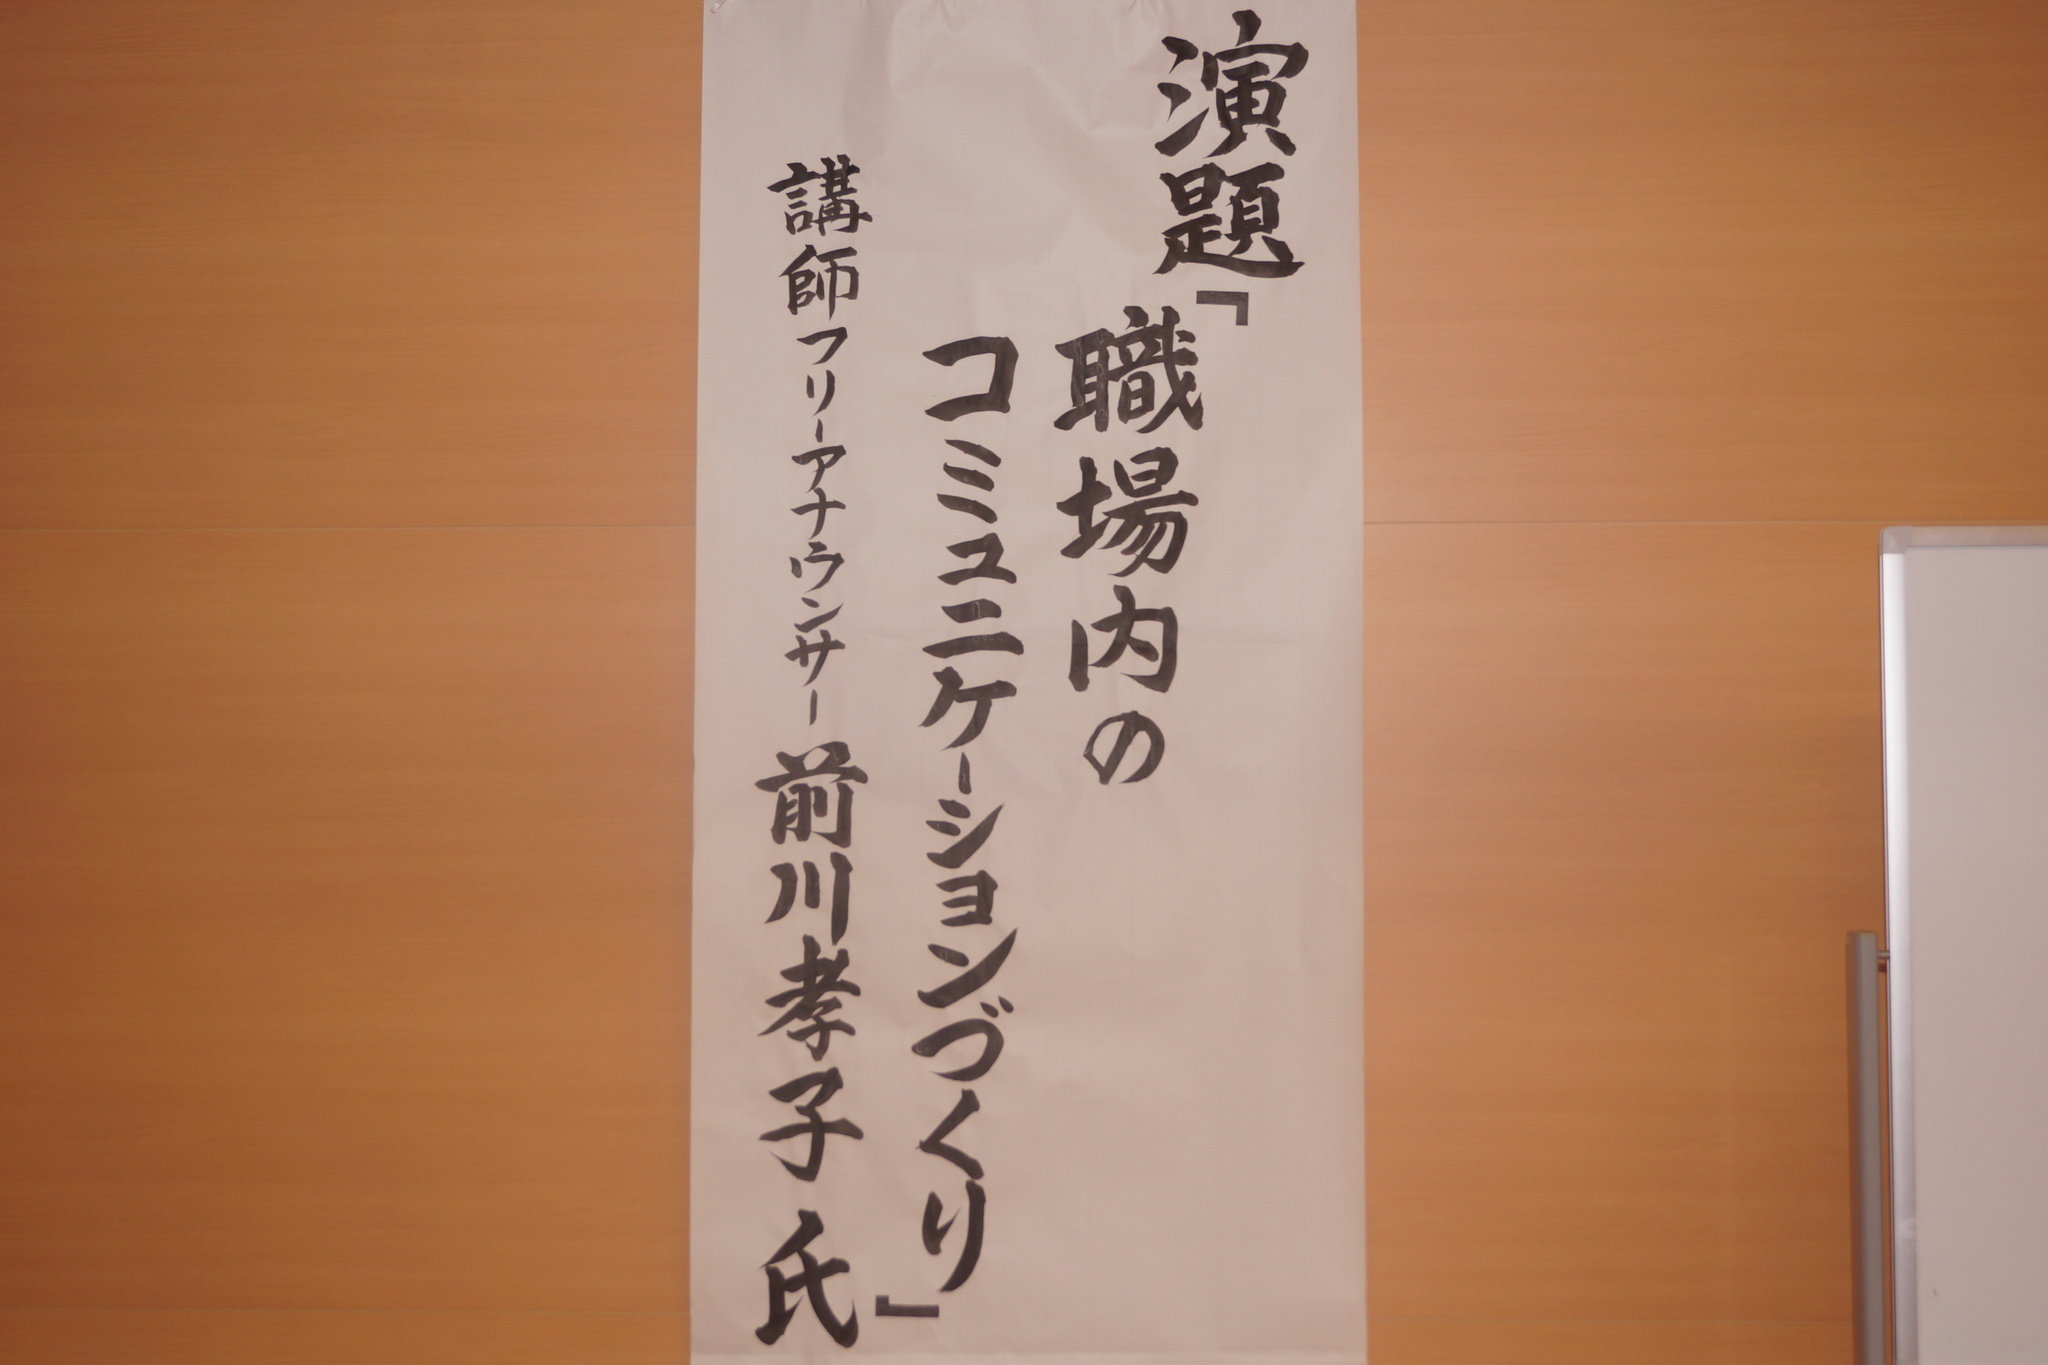 演題「職場内の
コミュニケーションづくり」
講師フリーアナウンサー前川孝子氏